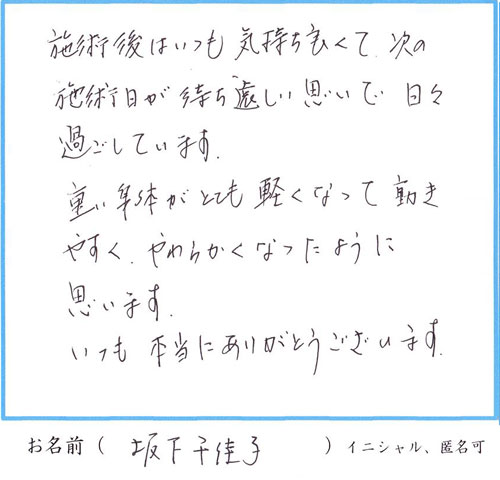 施術後はいつも気持ち良くて、次の
施術日が待ち遠しい思いで日々
過ごしています。
重い身体がとても軽くなって動き
やすく、やわらかくなったように
思います。
いつも本当にありがとうございます。
お名前（ 坂下千佳子 ）イニシャル、匿名可